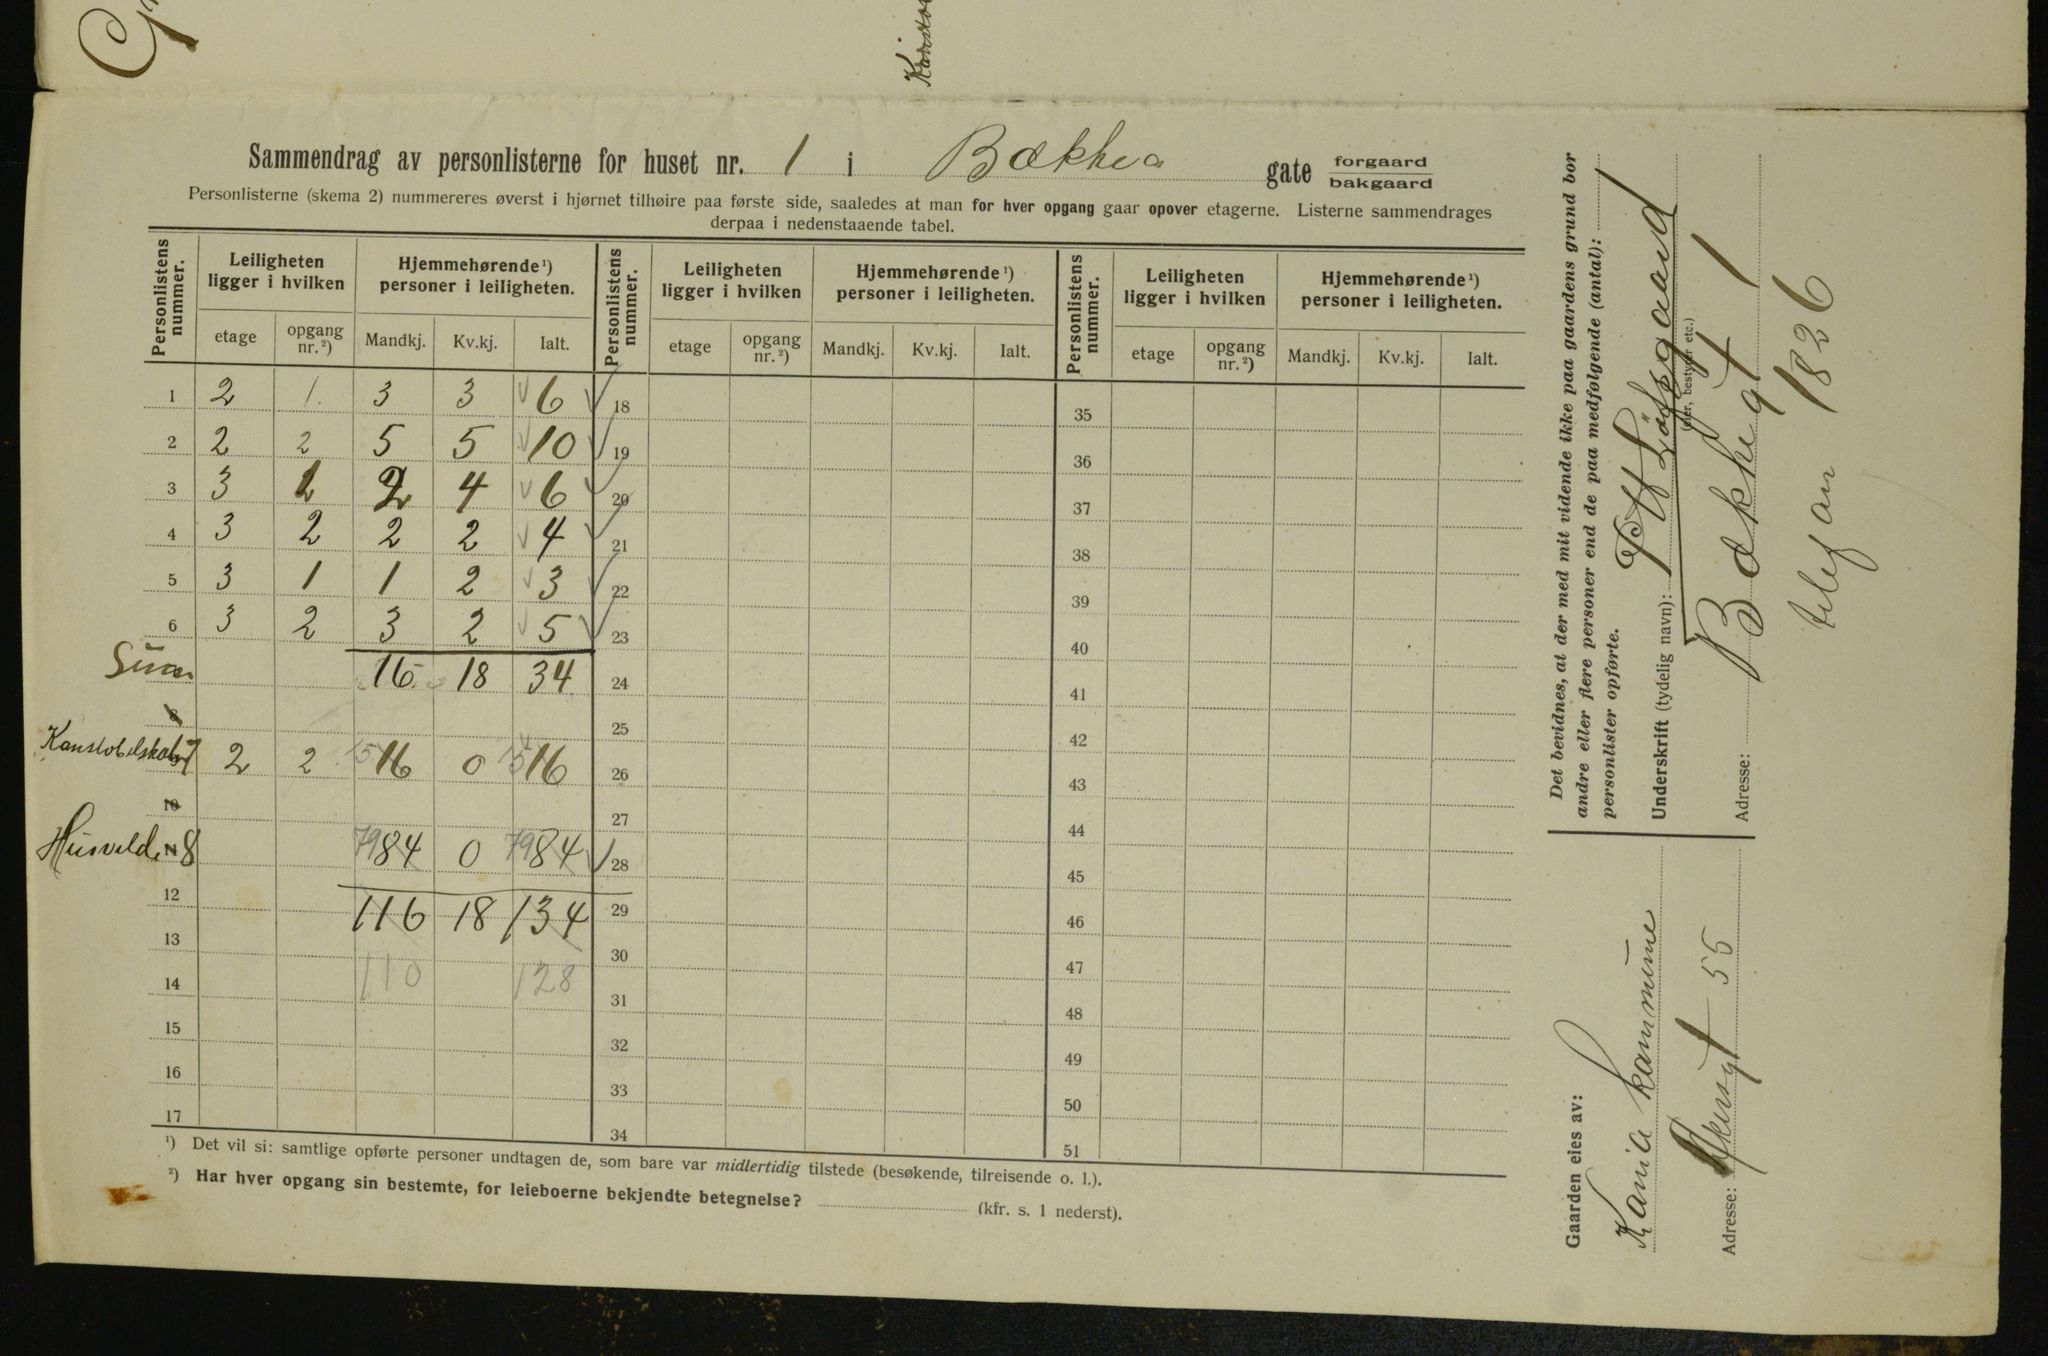 Sammendrag av personlisterne for huset nr. 1 i Bækkea gate forgaard
bakgaard
Personlisterne (skema 2) nummereres øverst i hjørnet tilhøire paa første side, saaledes at man for hver opgang gaar opover etagerne. Listerne sammendrages
derpaa i nedenstaaende tabel.
Personlistens nummer. Leiligheten ligger i hvilken Hjemmehørende ¹) personer i leiligheten. Personlistens nummer. Leiligheten ligger i hvilken Hjemmehørende ¹) personer i leiligheten. Personlistens nummer. Leiligheten ligger i hvilken Hjemmehørende ¹) personer i leiligheten.
etage opgang nr. ²) Mandkj. Kv.kj. Ialt. etage opgang nr. ²) Mandkj. Kv.kj. Ialt. etage opgang nr. ²) Mandkj. Kv.kj. Ialt.
1 2 1. 3 3 6 18 35
2 2 2 5 5 10 19 36
3 3 1 2 4 6 20 37
4 3 2 2 2 4 21 38
5 3 1 1 2 3 22 39
6 3 2 3 2 5 23 40
16 18 34 24 41
8 25 42
7 2 2 15 16 0 15 16 26 43
10 27 44
8 79 84 0 79 84 28 45
12 116 18 134 29 46
13 110 128 30 47
14 31 48
15 32 49
16 33 50
17 34 51
¹) Det vil si: samtlige opførte personer undtagen de, som bare var midlertidig tilstede (besøkende, tilreisende o. l.).
²) Har hver opgang sin bestemte, for leieboerne bekjendte betegnelse? (kfr. s. 1 nederst).
Det bevidnes, at der med mit vidende ikke paa gaardens grund bor
andre eller flere personer end de paa medfølgende (antal):
personlister opførte.
Underskrift (tydelig navn):
(eier, bestyrer etc.)
Adresse: Bækkegt 1
telefon 1826
Gaarden eies av:
Kania kommune
Adresse: Akersgt 55